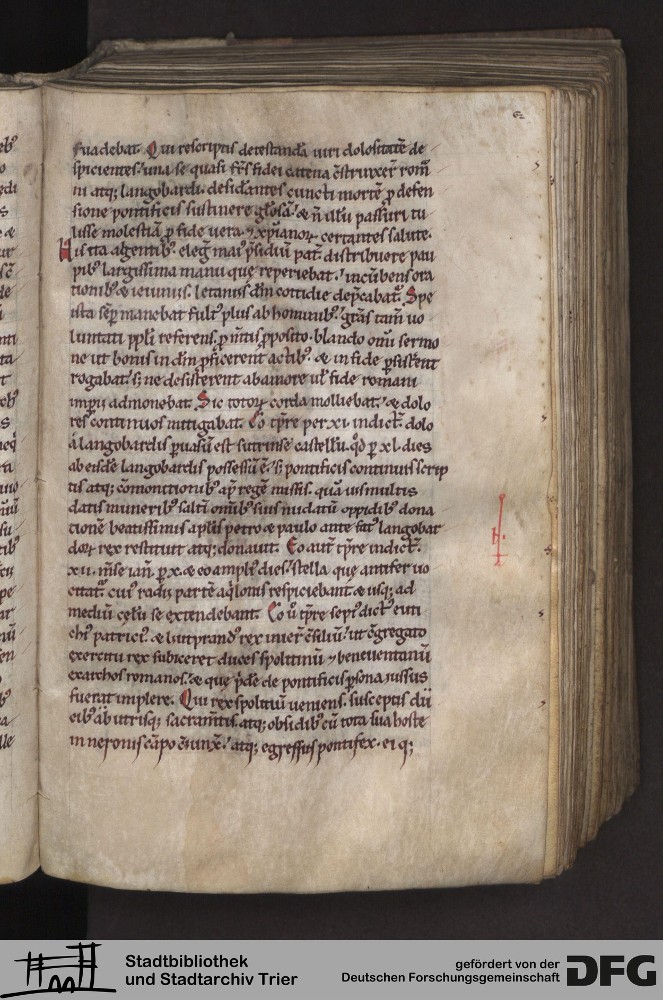 suadebat. Qui rescriptis detestanda uiri dolositatē de
spicientes. una se quasi frs̄ fidei catena c̄strinxer̄ rom̄
ni atq; langobardi. desid̓antes cuncti mortē ꝓ defen
sione pontificis sustinere gl̓osā. ⁊ n̄ illū passuri tu
lisse molestiā ꝓ fide uera. ⁊ xp̄ianoꝝ certantes salute.
His ita agentibꝰ. eleg̅ mai᷒ p̓sidiū pat̅. distribuere pau
pibꝰ largissima manu que reperiebat. incūbens ora
tionibꝰ ⁊ ieiuniis. letaniis dn̄m cottidie dep̄cabat᷑. Spe
ista sēp manebat fult᷒ plus ab hominibꝰ. gr̄as tam̄ uo
luntati ppl̓i referens. ꝓ m̄tis ꝓposito. blando om̄i sermo
ne ut bonis in dn̄m ꝓficerent actibꝰ. ⁊ in fide ꝑsist̓ent
rogabat. s; ne desisterent ab amore ul̓ fide romani
imꝑii admonebat. Sic totoꝝ corda molliebat. ⁊ dolo
res continuos mitigabat. Eo tp̄re per xi. indict̄. dolo
a langobardis ꝑuasū est sutriense castellū. qd̓ ꝑ xl. dies
ab eisdē langobardis possessū ē. s; pontificis continuis scrip
tis atq; cōmonitionibꝰ ap̓ regē missis. quāuis multis
datis muneribꝰ salti omībꝰ suis nudatū oppidibꝰ dona
tionē beatissimis aplis petro ⁊ paulo ante fat᷒ langobar
doꝝ rex restituit atq; donauit. Eo aut̄ tp̄re indict̄.
xii. mse ian̄. ꝑ x. ⁊ eo ampl᷒ dies. stella que antifer uo
citat᷑. cui᷒ radii partē aq̓lonis respiciebant. ⁊ usq; ad
mediū celū se extendebant. Eo ů tp̄re sep᷒ dict᷒ euti
chi᷒ patrici᷒. ⁊ luitprand᷒ rex inier̄ c̄siliū. ut c̄gregato
exercitu rex subiceret duces spolitinū ⁊ beneuentanū
exarchos romanos. ⁊ que p̓de de pontificis ꝑsona iussus
fuerat implere. Qui rex spolitiū ueniens. susceptis du
cibꝰ ab utrisq; sacram̄tis. atq; obsidibꝰ cū tota sua hoste
in neronis cāpo c̄iunx̄. atq; egressus pontifex. ei q;
Stadtbibliothek
und Stadtarchiv Trier
gefördert von der
Deutschen Forschungsgemeinschaft
DFG